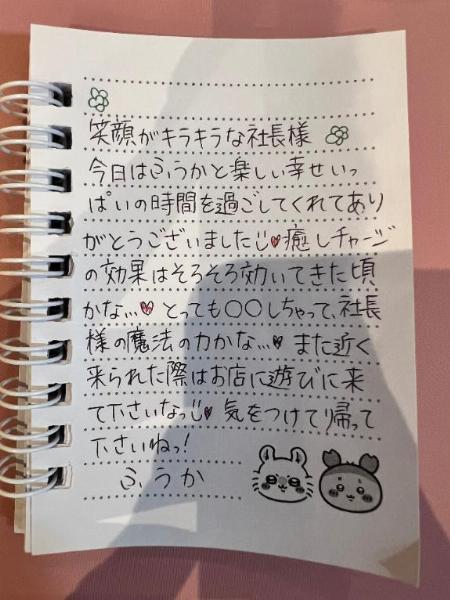 笑顔がキラキラな社長様
今日はふうかと楽しい幸せいっ
ぱいの時間を過ごしてくれてあり
がとうございました♥癒しチャージ
の効果はそろそろ効いてきた頃
かな…♥とっても〇〇しちゃって、社長
様の魔法の力かな…♥また近く
来られた際はお店に遊びに来
て下さいなっ♥気をつけて帰って
下さいねっ!
ふうか